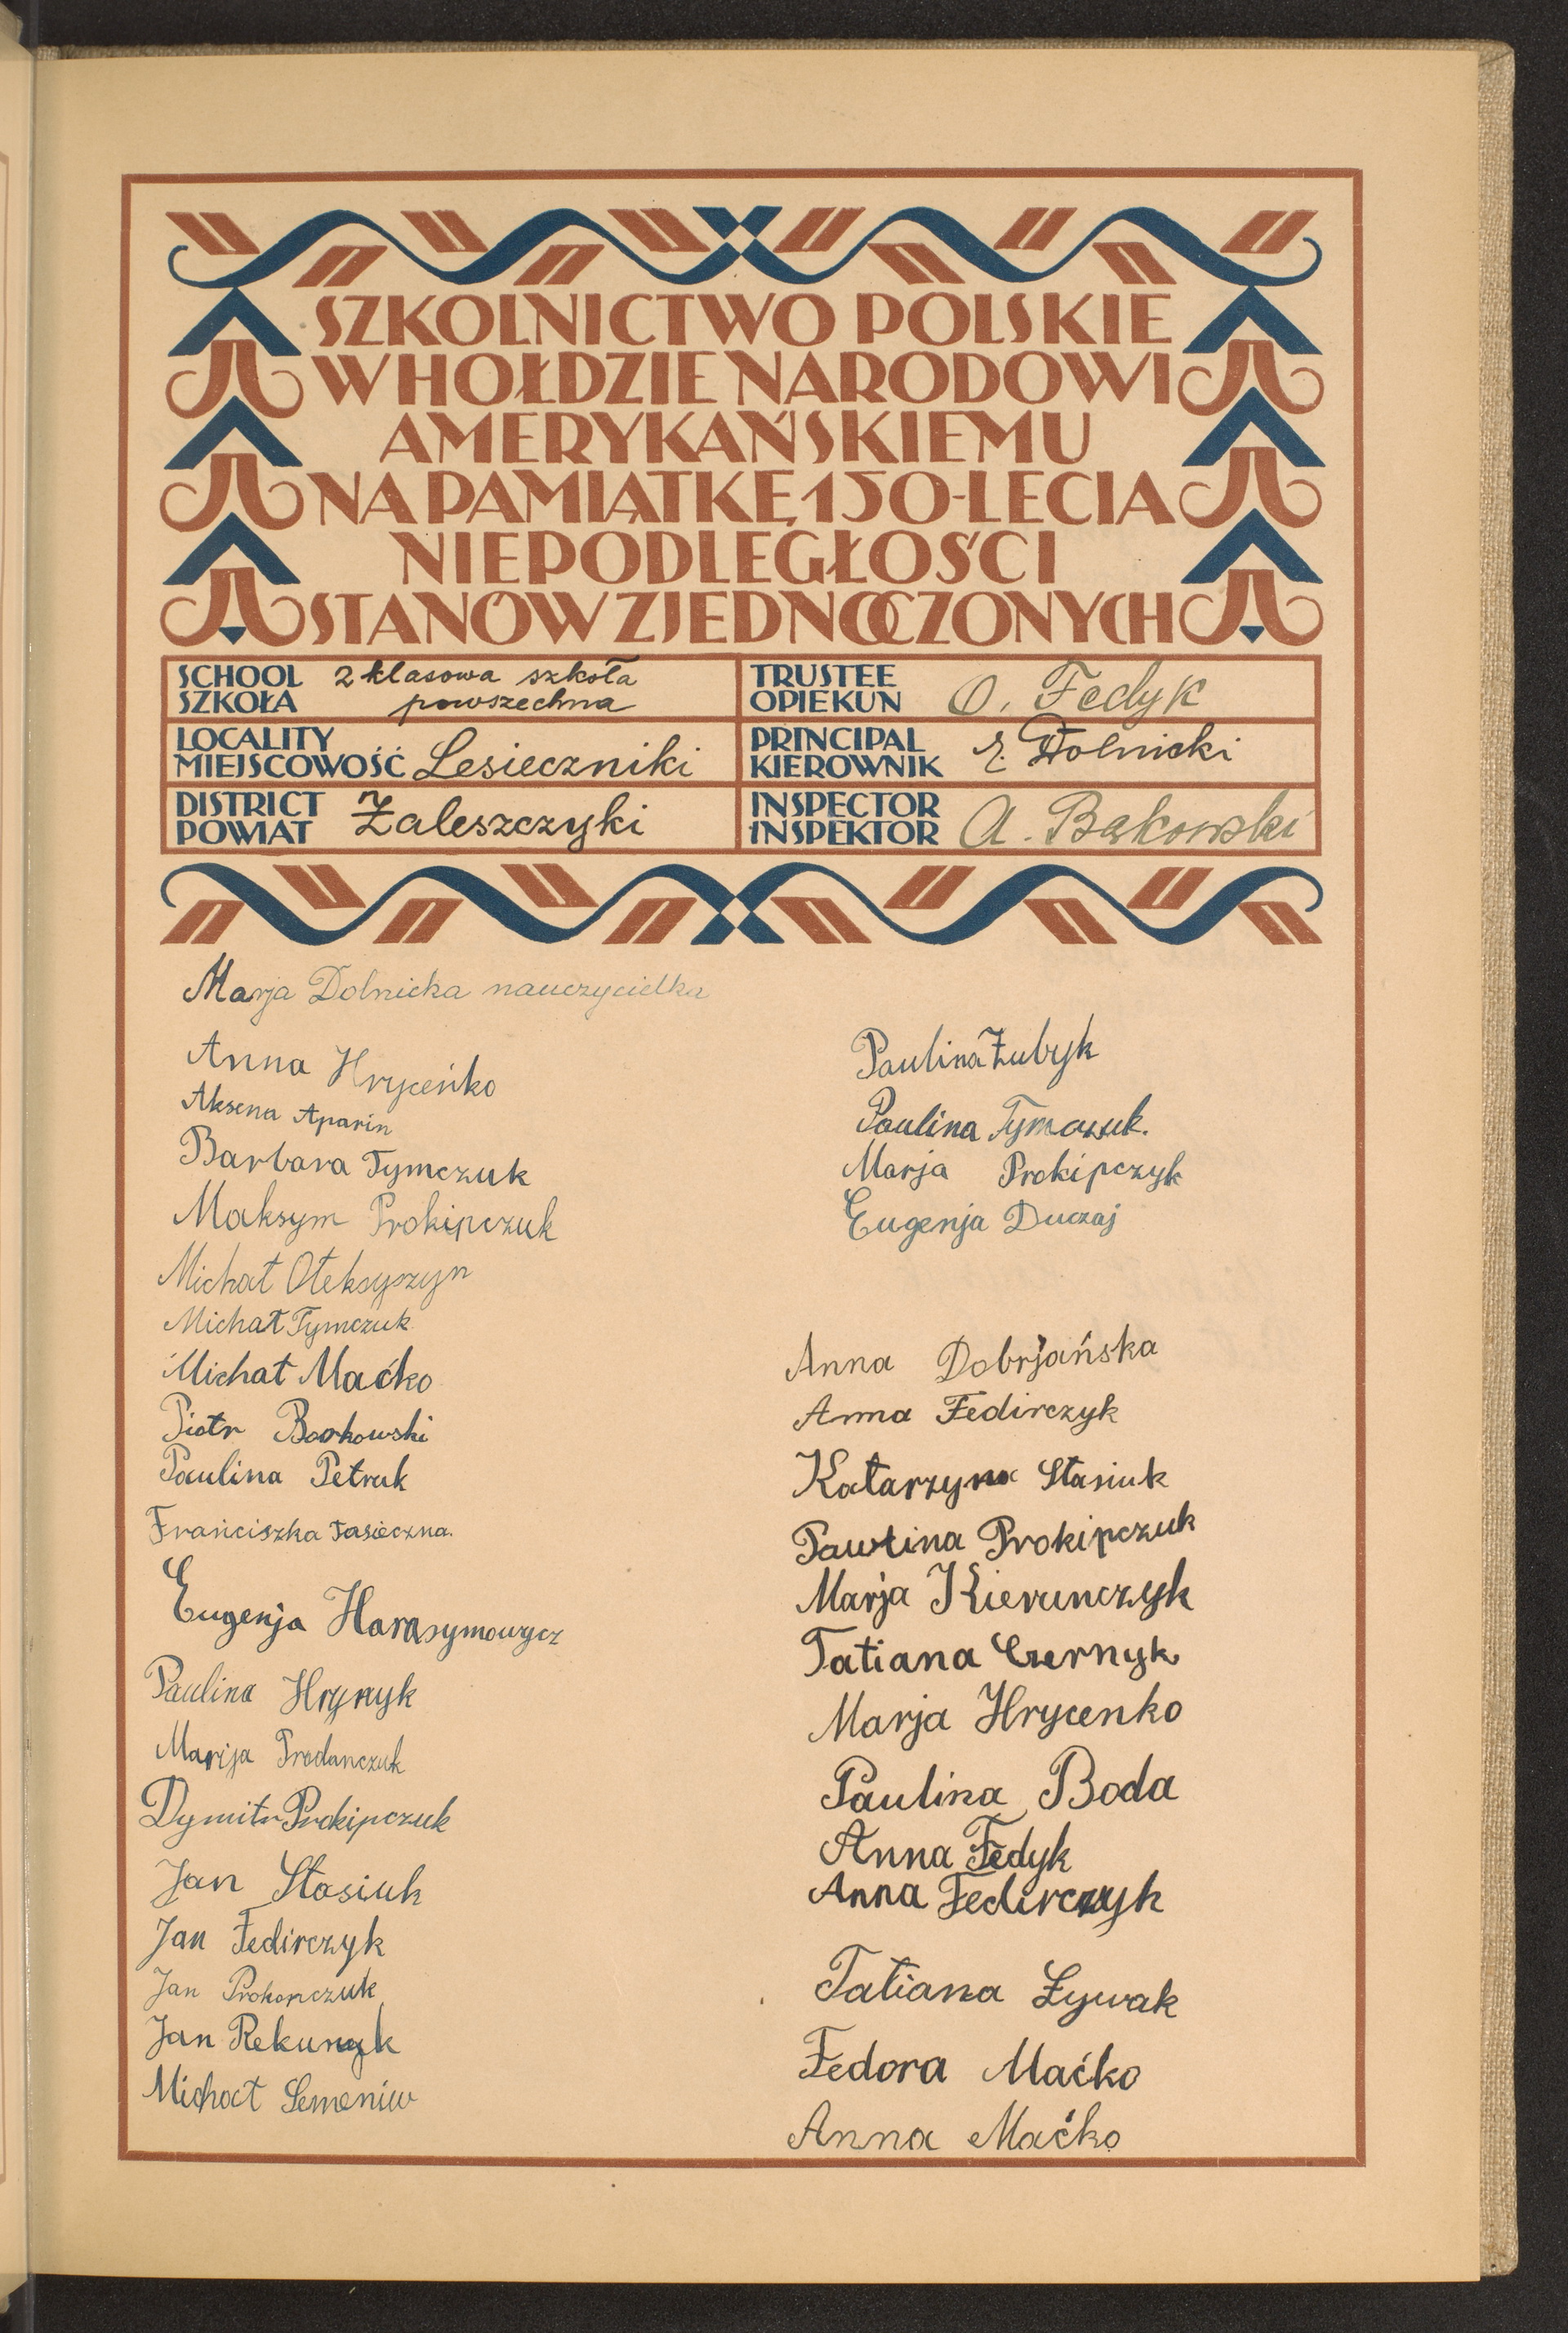 SZKOLNICTWO POLSKIE
W HOŁDZIE NARODOWI
AMERYKAŃSKIEMU
NA PAMIĄTKĘ 150-LECIA
NIEPODLEGŁOŚCI
STANÓW ZJEDNOCZONYCH
SCHOOL
SZKOŁA
2 klasowa szkoła
powszechna
TRUSTEE
OPIEKUN
O. Fedyk
LOCALITY
MIEJSCOWOŚĆ
Lesieczniki
PRINCIPAL
KIEROWNIK
Dolnicki
DISTRICT
POWIAT
Zaleszczyki
INSPECTOR
INSPEKTOR
A. Bąkowski
Marja Dolnicka nauczycielka
Anna Hryceńko
Aksena Aparin
Barbara Tymczuk
Maksym Prokipczuk
Michał Ołeksyszyn
Michał Tymczuk
Michał Maćko
Piotr Borkowski
Paulina Petruk
Franciszka Tasieczna.
Eugenja Harasymowycz
Paulina Hrynyk
Marija Prodanczuk
Dymitr Prokipczuk
Jan Stasiuk
Jan Fedirczyk
Jan Prokopczuk
Jan Rekunyk
Michał Semeniw
Paulina Zubyk
Paulina
Marja Prokipczyk
Eugenja Duczaj
Anna Dobrjańska
Anna Fedirczyk
Katarzyna Stasiuk
Pawlina Prokipczuk
Marja Kierunczyk
Tatiana Czernyk
Marja Hrycenko
Paulina Boda
Anna Fedyk
Anna Fedirczyk
Tatiana Żywak
Fedora Maćko
Anna Maćko